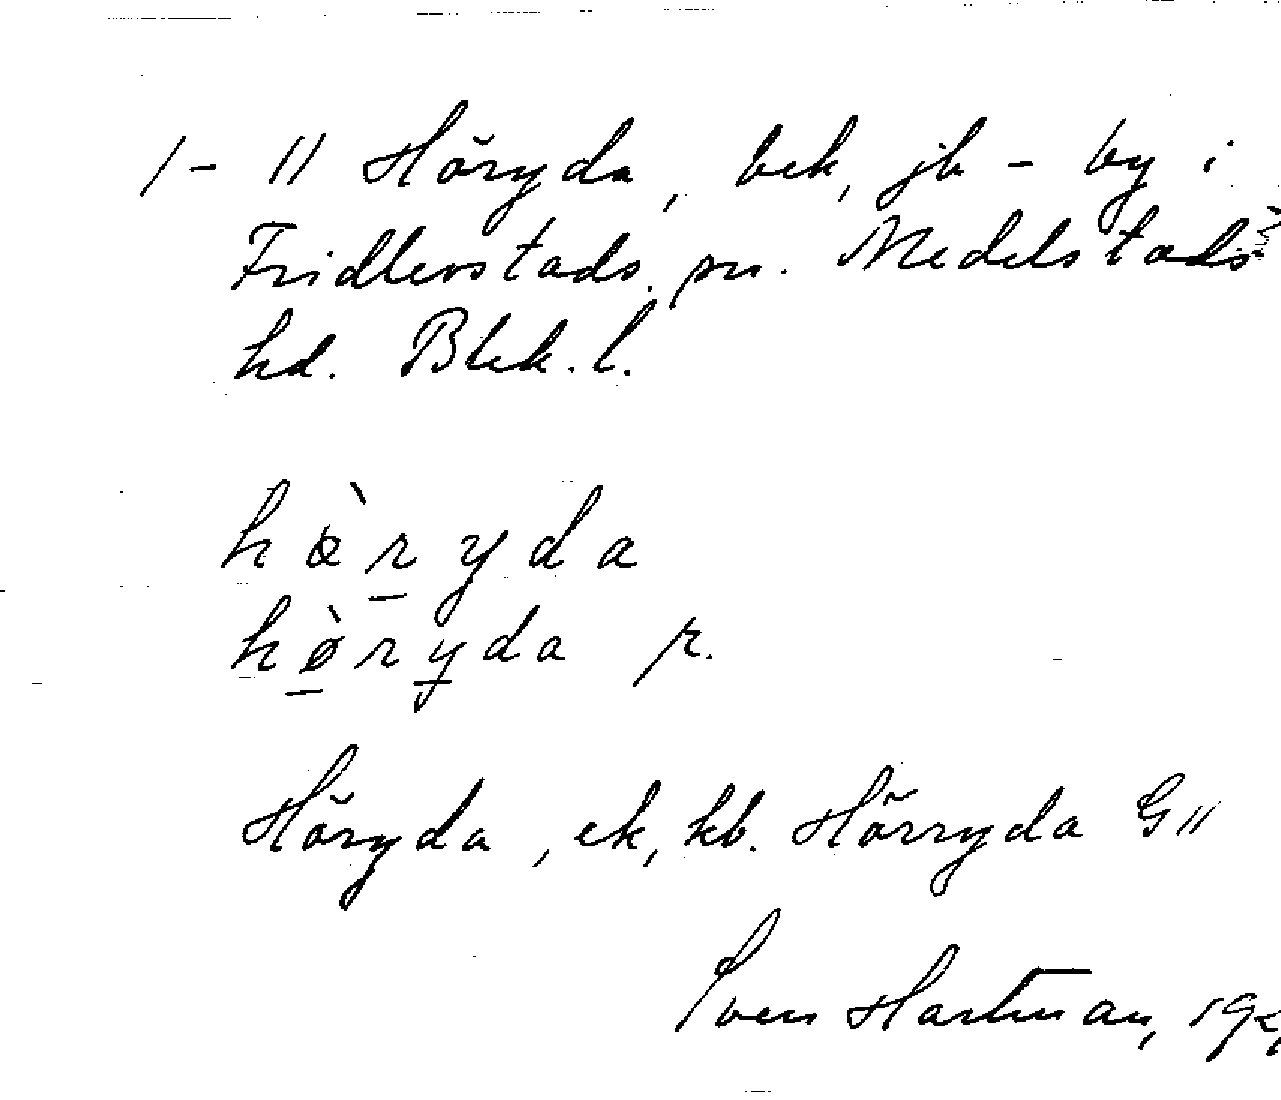 1 - 11 Höryda, bek, jb - by i
Fridlevstads sn. Medelstads
hd. Blek. l.
hœ̀r̲yda
hø̲̀ry̲da r.
Höryda, ek, kb. Hörryda G11
Sven Hartman, 19